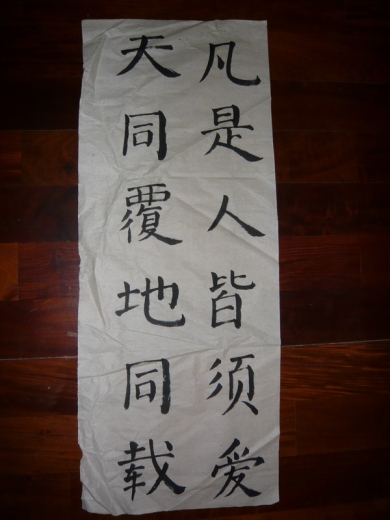 凡是人皆须爱
天同覆地同载